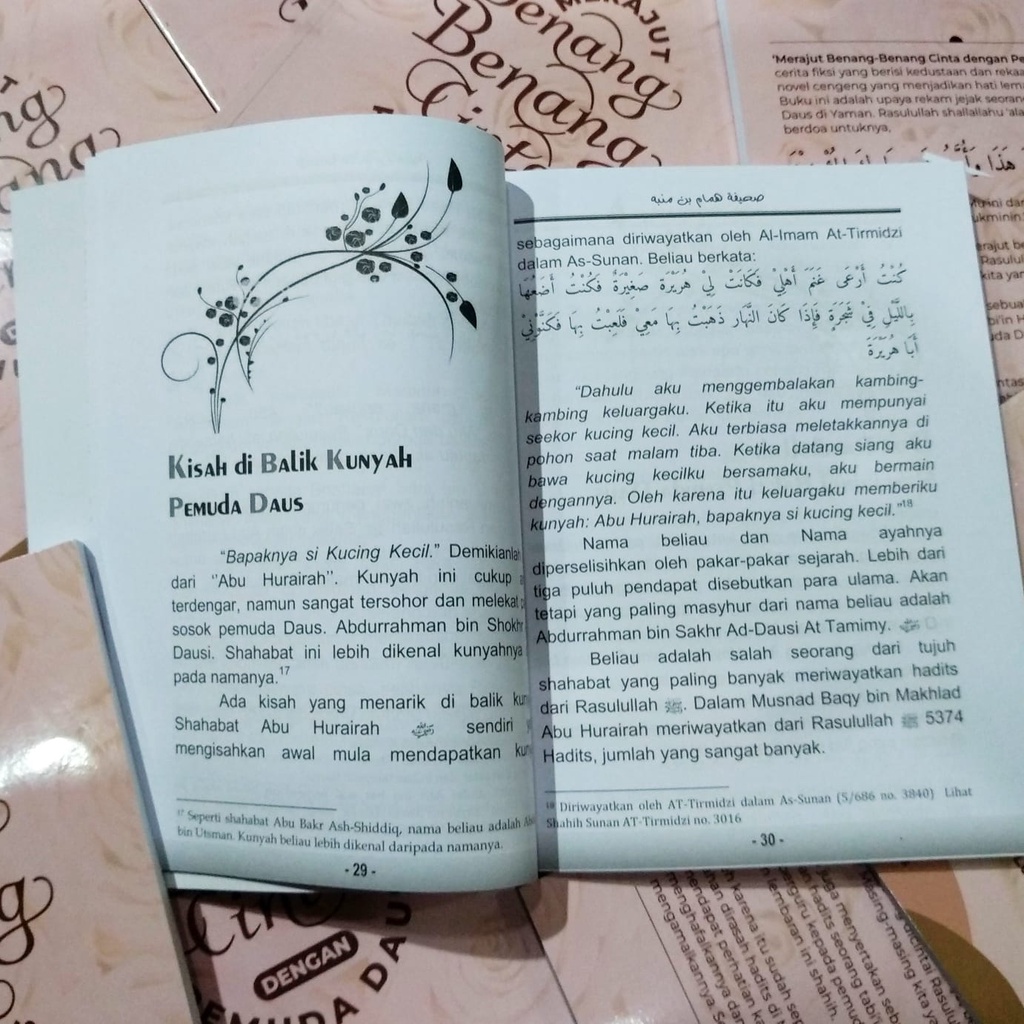 MERAJUT
Benang
Benang
Cinta
DENGAN
'Merajut Benang-Benang Cinta dengan Pe
cerita fiksi yang berisi kedustaan dan rekaa
novel cengeng yang menjadikan hati lema
Buku ini adalah upaya rekam jejak seoran
Daus di Yaman. Rasulullah shallallahu 'ala
berdoa untuknya,
Kisah di Balik Kunyah
Pemuda Daus
"Bapaknya si Kucing Kecil." Demikianlah
dari "Abu Hurairah". Kunyah ini cukup
terdengar, namun sangat tersohor dan melekat
sosok pemuda Daus. Abdurrahman bin Shokhr
Dausi. Shahabat ini lebih dikenal kunyahnya
pada namanya.17
Ada kisah yang menarik di balik kun
Shahabat Abu Hurairah sendiri
mengisahkan awal mula mendapatkan kun
17 Seperti shahabat Abu Bakr Ash-Shiddiq, nama beliau adalah
bin Utsman. Kunyah beliau lebih dikenal daripada namanya.
- 29 -
صحيفة همام بن منبه
sebagaimana diriwayatkan oleh Al-Imam At-Tirmidzi
dalam As-Sunan. Beliau berkata:
كُنْتُ أَرْعَى غَنَمَ أَهْلِيْ فَكَانَتْ لِيْ هُرَيْرَة صَغِيْرَةٌ فَكُنْتُ أَضَعُهَا
بِاللَّيْلِ فِيْ شَجَرَةٍ فَإِذَا كَانَ النَّهَار ذَهَبْتُ بِهَا مَعِيْ فَلَعِبْتُ بِهَا فَكَنَّوْنِيْ
أَبَا هُرَيْرَةَ
"Dahulu aku menggembalakan kambing-
kambing keluargaku. Ketika itu aku mempunyai
seekor kucing kecil. Aku terbiasa meletakkannya di
pohon saat malam tiba. Ketika datang siang aku
bawa kucing kecilku bersamaku, aku bermain
dengannya. Oleh karena itu keluargaku memberiku
kunyah: Abu Hurairah, bapaknya si kucing kecil."18
Nama beliau dan Nama ayahnya
diperselisihkan oleh pakar-pakar sejarah. Lebih dari
tiga puluh pendapat disebutkan para ulama. Akan
tetapi yang paling masyhur dari nama beliau adalah
Abdurrahman bin Sakhr Ad-Dausi At Tamimy.
Beliau adalah salah seorang dari tujuh
shahabat yang paling banyak meriwayatkan hadits
dari Rasulullah ﷺ. Dalam Musnad Baqy bin Makhlad
Abu Hurairah meriwayatkan dari Rasulullah ﷺ 5374
Hadits, jumlah yang sangat banyak.
18 Diriwayatkan oleh AT-Tirmidzi dalam As-Sunan (5/686 no. 3840) Lihat
Shahih Sunan AT-Tirmidzi no. 3016
- 30 -